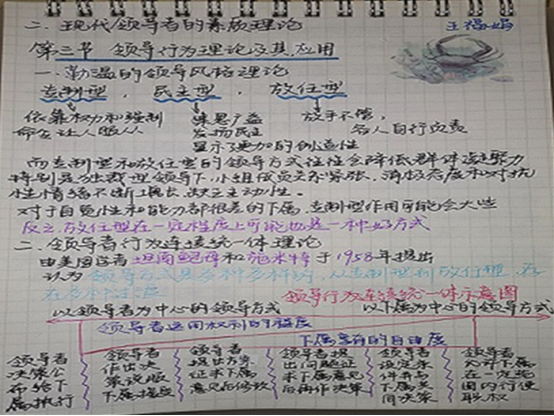 二、现代领导者的素质理论
王福娟
第三节 领导行为理论及其应用
一、勒温的领导风格理论
专制型， 民主型， 放任型
依靠权力和强制 集思广益 放手不管，
命令让人服从 发扬民主 各人自行负责
显示了更加的创造性
而专制型和放任型的领导方式往往会降低群体凝聚力
特别是独裁型领导下，小组成员关系紧张，消极态度和对抗
性情绪不断增长，缺乏主动性。
对于自觉性和能力都很差的下属，专制型作用可能会大些
反之，放任型在一定程度上可能也是一种好方式
二、领导者行为连续统一体理论
由美国学者坦南鲍姆和施米特于1958年提出
认为领导方式是多种多样的，从专制型到放任型，存
在多种过渡
领导行为连续统一体示意图
以领导者为中心的领导方式 以下属为中心的领导方式
领导者运用权利的程度
下属享有的自由度
领导者 领导者 领导者 领导者提 领导者 领导者
决策公 作出决 提出方案 出问题征 允许下属
布给下 策说服 征求下属 求下属意见 在一定范
属执行 下属接受 意见后修改 后再作决策 下属共 围内行使
同决策 职权